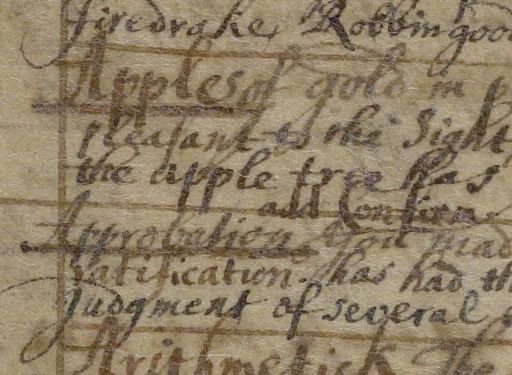 firedrake, Robbin good
Apples of gold in p
pleasant to the Sight
the apple tree has
add Confirm
Approbation You mad
ratification. has had th
Judgment of several
Arithmetick The